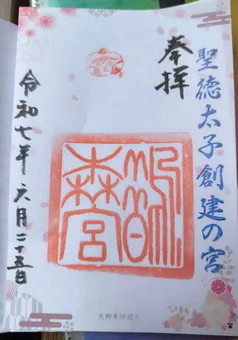 聖徳太子創建の宮
奉拝
鵲森宮
令和七年六月二十五日